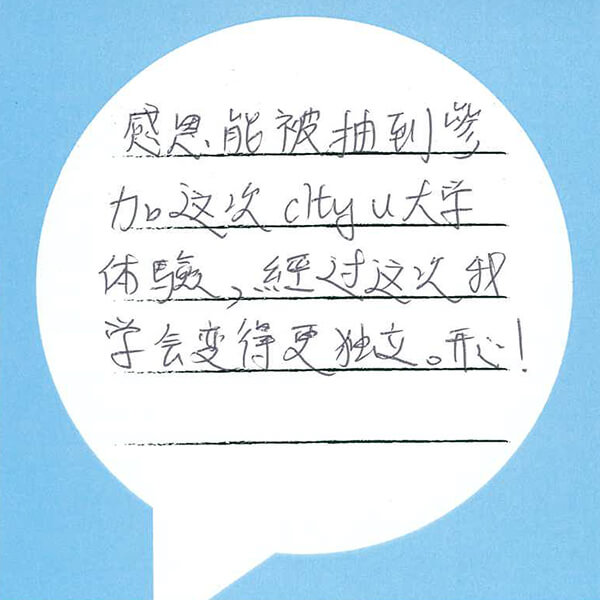 感恩能被抽到參
加这次 city u 大学
体驗,經过这次我
学会变得更独立。开心!